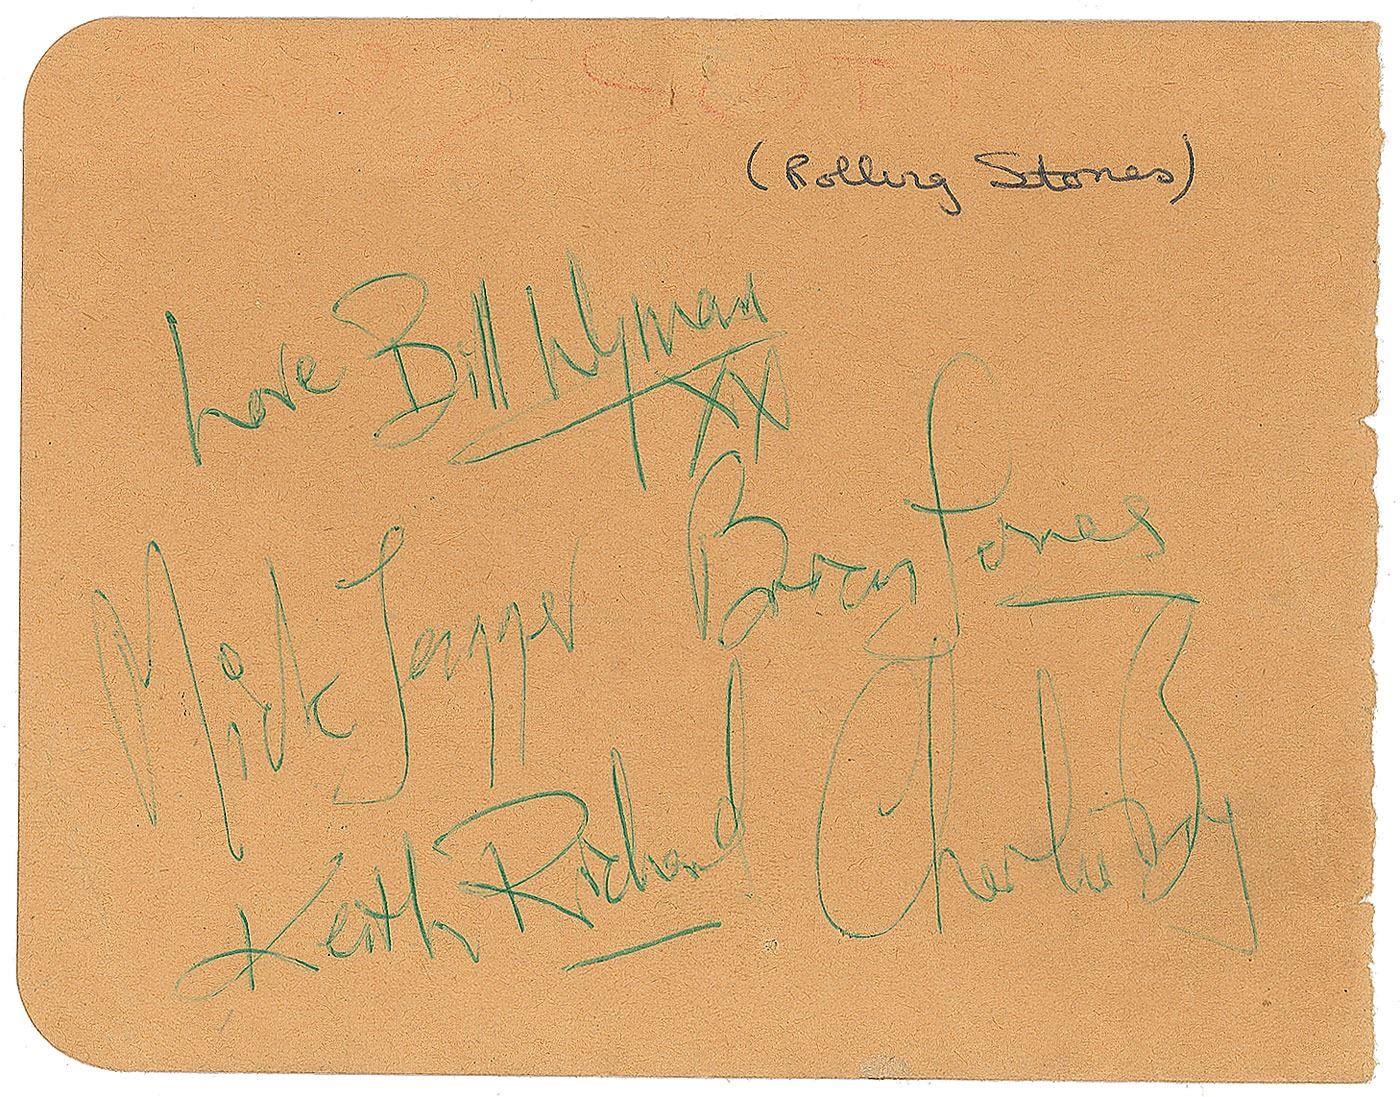 SCOTT
(Rolling Stones)
Love Bill Wyman
XX
Brian Jones
Mick Jagger
Keith Richard
Charlie Boy